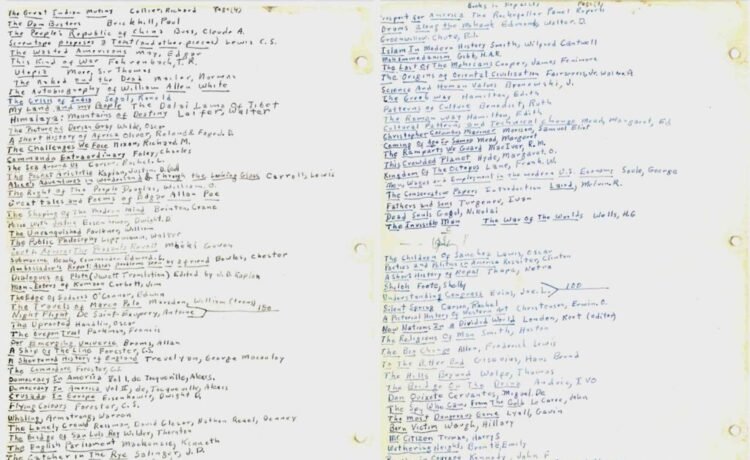 The Great Indian Mutiny Collier, Richard Page (4)
The Dam Busters Brickhill, Paul
The People's Republic of China Buss, Claude A.
Screwtape Proposes a Toast (and other pieces) Lewis C.S.
The Wasted Americans May, Edgar
This Kind of War Fehrenbach, T.R.
Utopia More, Sir Thomas
The Naked and the Dead Mailer, Norman
The Autobiography of William Allen White
The Crisis of India Segal, Ronald
My Land and my People The Dalai Lama Of Tibet
Himalaya: Mountains of Destiny Walter
The Picture of Dorian Gray Wilde, Oscar
A Short History of Africa Oliver, Roland &
The Challenges We Face Nixon, Richard M.
Commando Extraordinary Foley, Charles
The Sea Around Us Carson, Rachel L.
Alice's Adventures in Wonderland & Through the Looking Glass Carroll, Lewis
The Right Of The People Douglas, William O.
Great tales and Poems of Edgar Allan Poe
The Shaping Of The Modern Mind Brinton, Crane
The Unvanquished Faulkner, William
The Public Philosophy Lippmann, Walter
Submarine
Ambassador's Report Bowles, Chester
Dialogues of Plato (Jowett Translation) Edited by J.D. Kaplan
Man-Eaters of Kumaon Corbett, Jim
The Edge of Sadness O'Connor, Edwin
The Travels of Marco Polo Marsden, William (trans)
Night Flight De Saint-Exupery, Antoine 150
The Uprooted Handlin, Oscar
The Oregon Trail Parkman, Francis
Our Emerging Universe Broms, Allan
A Ship Of The Line Forester, C.S.
A Shortened History of England Trevelyan, George Macaulay
The Commodore Forester, C.S.
Democracy In America Vol I, de Tocqueville, Alexis.
Democracy In America Vol II, de, Tocqueville, Alexis
Crusade In Europe Eisenhower, Dwight D.
Flying Colours Forester, C.S.
Whaling, Armstrong, Warren
The Lonely Crowd Riesman, David Glazer, Nathan Reuel, Denney
The Bridge Of San Luis Rey Wilder, Thornton
The English Parliament Mackenzie, Kenneth
The Catcher In The Rye Salinger, J.D.
Books in
Prospect For America The Rockefeller Panel Reports
Drums Along the Mohawk Edmonds, Walter D.
Greenwillow, Chute, B.J.
Islam In Modern History Smith, Wilfred Cantwell
Mohammedanism Gibb, H.A.R.
The Last Of The Mohicans Cooper, James Fenimore
The Origins of Oriental Civilization Fairservis, Jr. Walter A
Science And Human Values Bronowski, J.
The Greek Way Hamilton, Edith
Patterns of Culture Benedict, Ruth
The Roman Way Hamilton, Edith
Cultural Patterns and Technical Change Mead, Margaret, Ed
Christopher Columbus Mariner Morison, Samuel Eliot
Coming Of Age In Samoa Mead, Margaret
The Ramparts We Guard MacIver, R.M.
This Crowded Planet Hyde, Margaret O.
Kingdom Of The Octopus Lane, Frank W.
New Wages and Employment in the modern U.S. Economy Soule, George
The Conservative Papers Introduction Laird, Melvin R.
Fathers and Sons Turgenev, Ivan
Dead Souls Gogol, Nikolai
The Invisible Man The War of The Worlds Wells, H.G
The Children Of Sanchez Lewis, Oscar
Parties and Politics in America Rossiter, Clinton
A Short History of Nepal Thapa, Netra
Shiloh Foote, Shelby
Understanding Congress 100
Silent Spring Carson, Rachel
A Pictorial History of Western Art Christensen, Erwin O.
New Nations In a Divided World London, Kurt (editor)
The Religions Of Man Smith, Huston
The Big Change Allen, Frederick Lewis
To The Bitter End Gisevius, Hans Bernd
The Hills Beyond Wolfe, Thomas
The Bridge On The Drina Andric, IVO
Don Quixote Cervantes, Miguel De
The Spy Who Came From The Cold Le Carre, John
The Most Dangerous Game Lyall, Gavin
Born Victim Waugh, Hillary
Mr Citizen Truman, Harry S
Wuthering Heights Bronte, Emily
Kennedy, John F